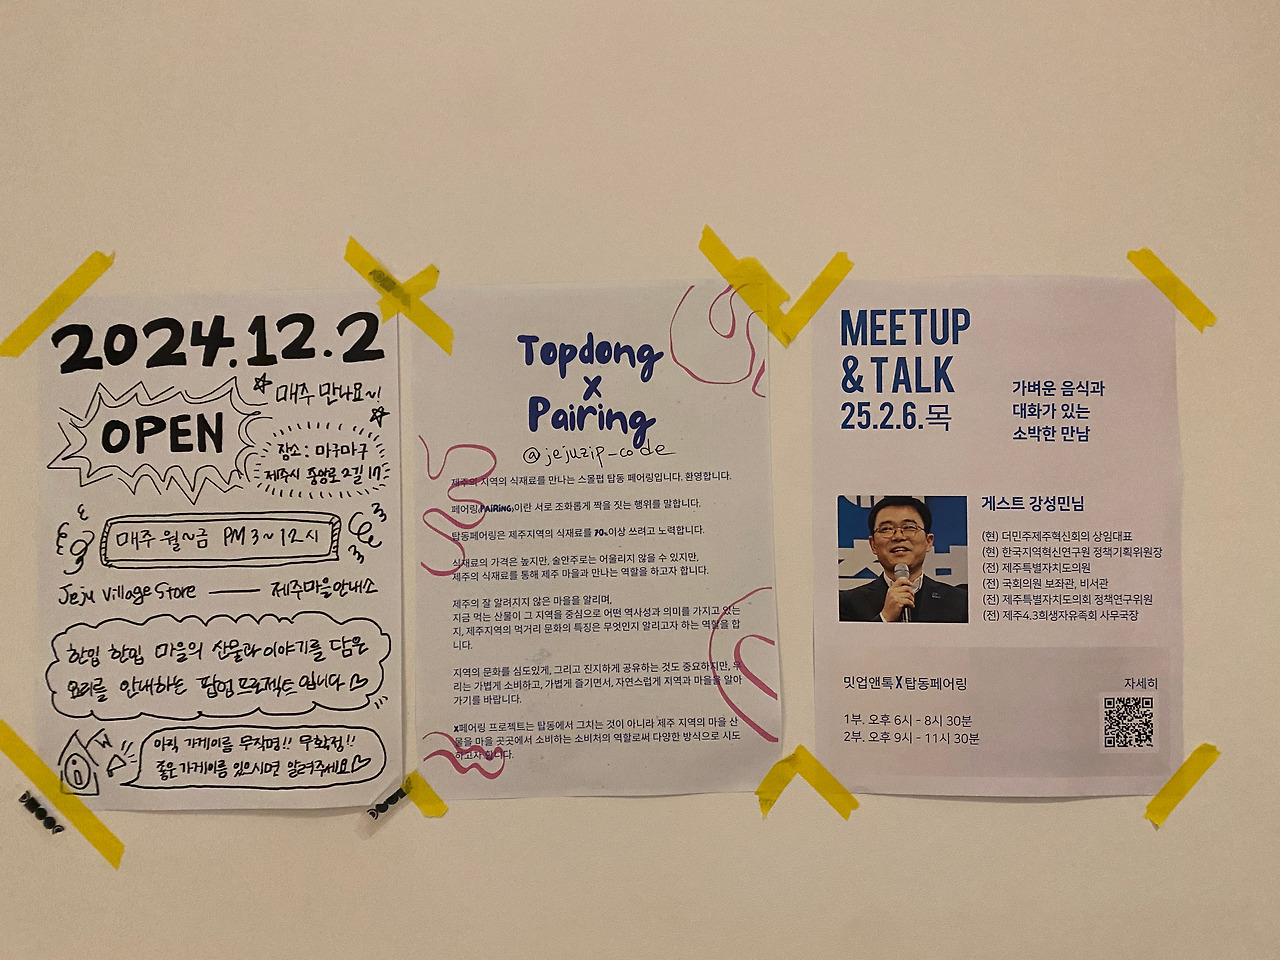 2024.12.2
OPEN
매주 만나요~!
장소 : 마구마구
제주시 중앙로 2길 17
매주 월~금 PM 3~12시
Jeju Village Store — 제주마을안내소
한입 한입 마을의 산물과 이야기를 담은
요리를 안내하는 팝업 프로젝트 입니다
아직 가게이름 무작명!! 무확정!!
좋은 가게이름 있으시면 알려주세요
Topdong
X
Pairing
@jejuzip_code
제주의 지역의 식재료를 만나는 스몰펍 탑동 페어링입니다. 환영합니다.
페어링(PAIRING)이란 서로 조화롭게 짝을 짓는 행위를 말합니다.
탑동페어링은 제주지역의 식재료를 70%이상 쓰려고 노력합니다.
식재료의 가격은 높지만, 술안주로는 어울리지 않을 수 있지만,
제주의 식재료를 통해 제주 마을과 만나는 역할을 하고자 합니다.
제주의 잘 알려지지 않은 마을을 알리며,
지금 먹는 산물이 그 지역을 중심으로 어떤 역사성과 의미를 가지고 있는
지, 제주지역의 먹거리 문화의 특징은 무엇인지 알리고자 하는 역할을 합
니다.
지역의 문화를 심도있게, 그리고 진지하게 공유하는 것도 중요하지만, 우
리는 가볍게 소비하고, 가볍게 즐기면서, 자연스럽게 지역과 마을을 알아
가기를 바랍니다.
X페어링 프로젝트는 탑동에서 그치는 것이 아니라 제주 지역의 마을 산
물을 마을 곳곳에서 소비하는 소비처의 역할로써 다양한 방식으로 시도
하고자 합니다.
MEETUP
& TALK
25.2.6.목
가벼운 음식과
대화가 있는
소박한 만남
게스트 강성민님
(현) 더민주제주혁신회의 상임대표
(현) 한국지역혁신연구원 정책기획위원장
(전) 제주특별자치도의원
(전) 국회의원 보좌관, 비서관
(전) 제주특별자치도의회 정책연구위원
(전) 제주4.3희생자유족회 사무국장
밋업앤톡 X 탑동페어링
자세히
1부. 오후 6시 - 8시 30분
2부. 오후 9시 - 11시 30분